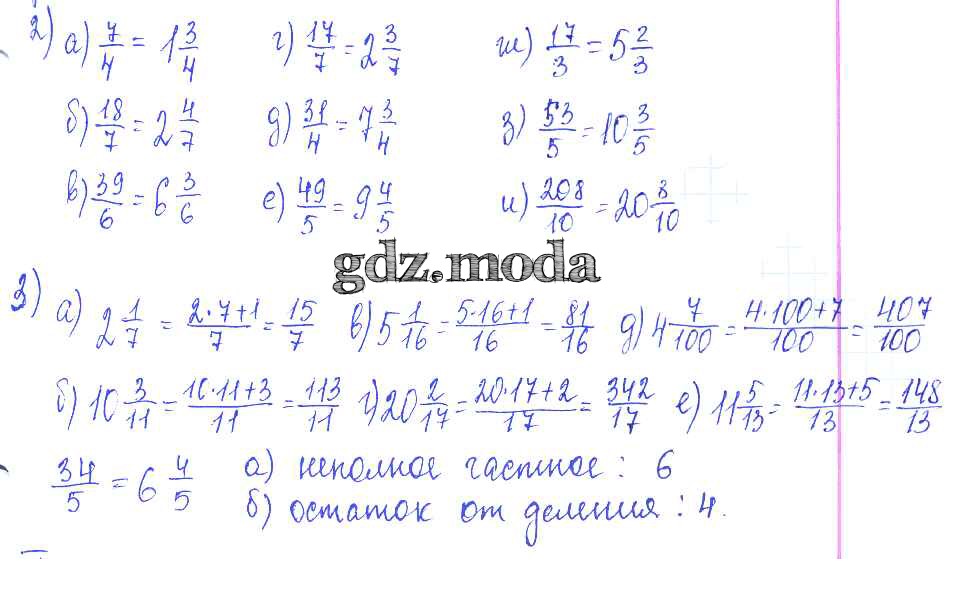 2) а) 7/4 = 1 3/4 г) 17/7 = 2 3/7 ж) 17/3 = 5 2/3
б) 18/7 = 2 4/7 д) 31/4 = 7 3/4 з) 53/5 = 10 3/5
в) 39/6 = 6 3/6 е) 49/5 = 9 4/5 и) 208/10 = 20 8/10
gdz.moda
3) а) 2 1/7 = 2·7+1/7 = 15/7 в) 5 1/16 = 5·16+1/16 = 81/16 д) 4 7/100 = 4·100+7/100 = 407/100
б) 10 3/11 = 10·11+3/11 = 113/11 г) 20 2/17 = 20·17+2/17 = 342/17 е) 11 5/13 = 11·13+5/13 = 148/13
34/5 = 6 4/5 а) неполное частное: 6
б) остаток от деления: 4.